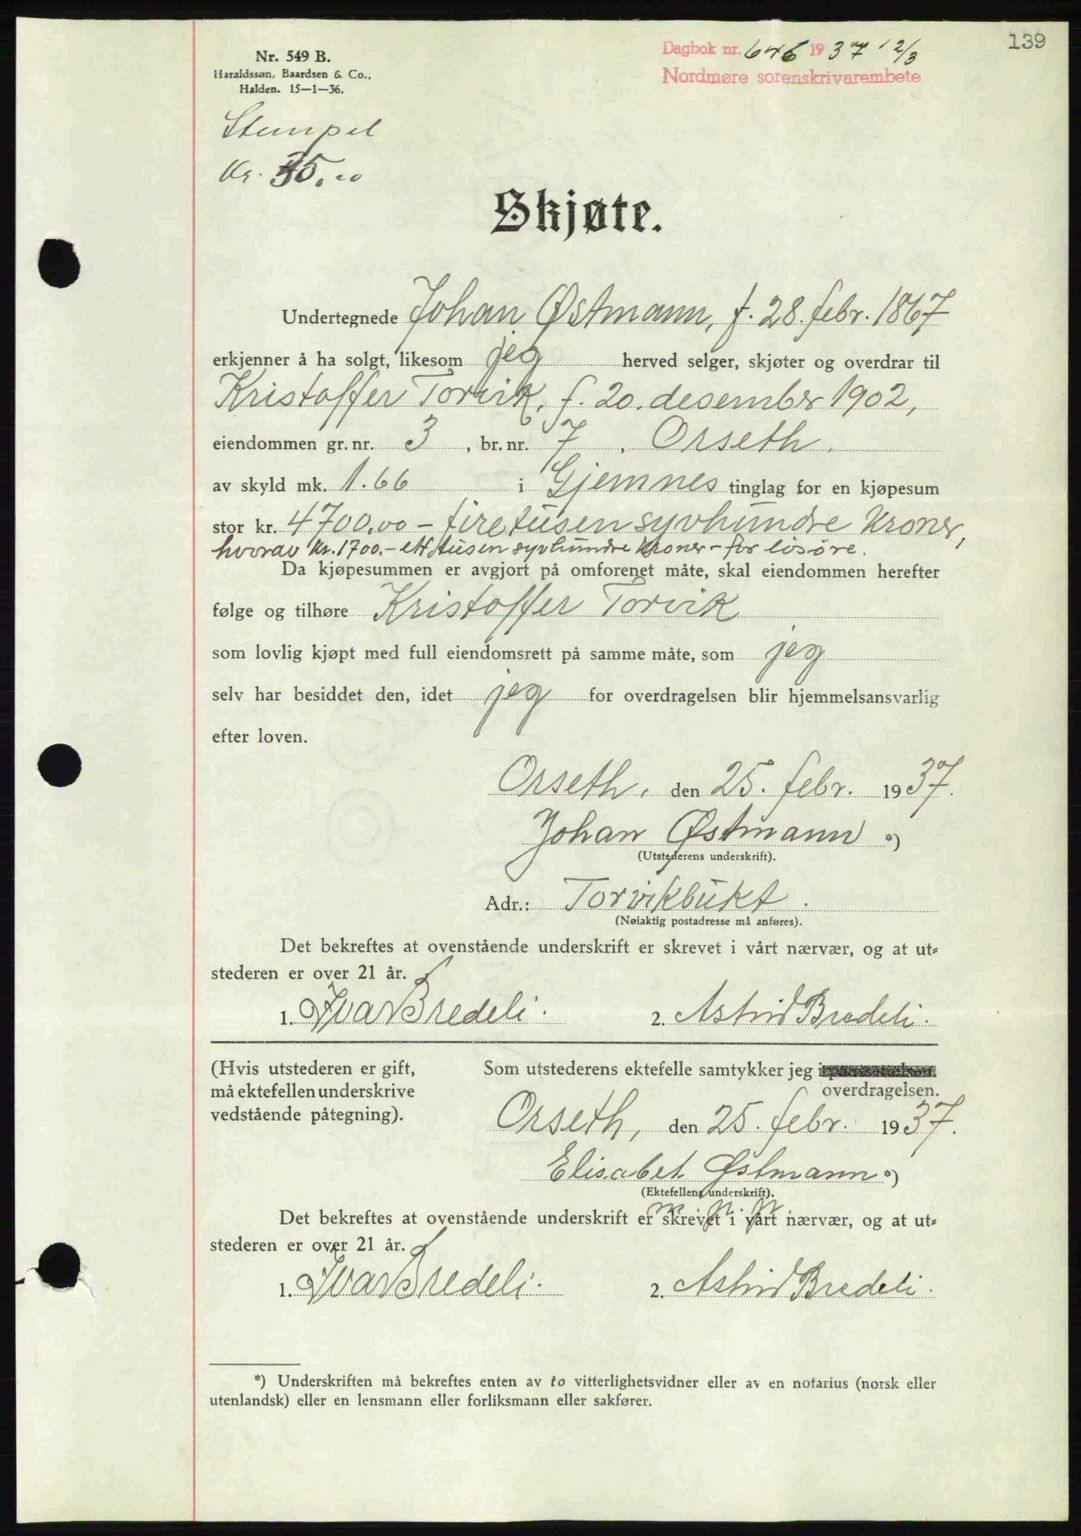 139
Nr. 549 B.
Haraldssøn, Baardsen & Co.,
Halden. 15—1—36.
Dagbok nr. 646 1937 12/3
Nordmøre sorenskrivarembete
Stempel
Kr. 35,00
Skjøte.
Undertegnede Johan Østmann, f. 28. febr. 1867
erkjenner å ha solgt, likesom jeg herved selger, skjøter og overdrar til
Kristoffer Torvik, f. 20. desember 1902,
eiendommen gr. nr. 3, br. nr. 7, Orseth.
av skyld mk. 1.66 i Gjemnes tinglag for en kjøpesum
stor kr. 4700.00 - firetusensyvhundre kroner,
hvorav kr. 1700.- ett tusen syvhundre kroner - for løsøre.
Da kjøpesummen er avgjort på omforenet måte, skal eiendommen herefter
følge og tilhøre Kristoffer Torvik
som lovlig kjøpt med full eiendomsrett på samme måte, som jeg
selv har besiddet den, idet jeg for overdragelsen blir hjemmelsansvarlig
efter loven.
Orseth, den 25. febr. 1937.
Johan Østmann *)
(Utstederens underskrift).
Adr.: Torvikbukt.
(Nøiaktig postadresse må anføres).
Det bekreftes at ovenstående underskrift er skrevet i vårt nærvær, og at ut=
stederen er over 21 år.
1. Ivar Bredeli. 2. Astrid Bredeli.
(Hvis utstederen er gift,
må ektefellen underskrive
vedstående påtegning).
Som utstederens ektefelle samtykker jeg i
overdragelsen.
Orseth, den 25. febr. 1937.
Elisabet Østmann *)
(Ektefellens underskrift).
Det bekreftes at ovenstående underskrift er skrevet i vårt nærvær, og at ut=
stederen er over 21 år.
1. Ivar Bredeli. 2. Astrid Bredeli.
*) Underskriften må bekreftes enten av to vitterlighetsvidner eller av en notarius (norsk eller
utenlandsk) eller en lensmann eller forliksmann eller sakfører.